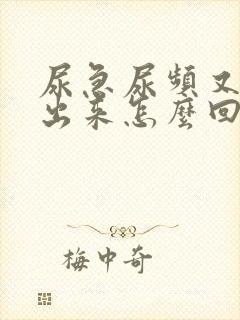 尿急尿頻又
出來怎麼回
梅中奇